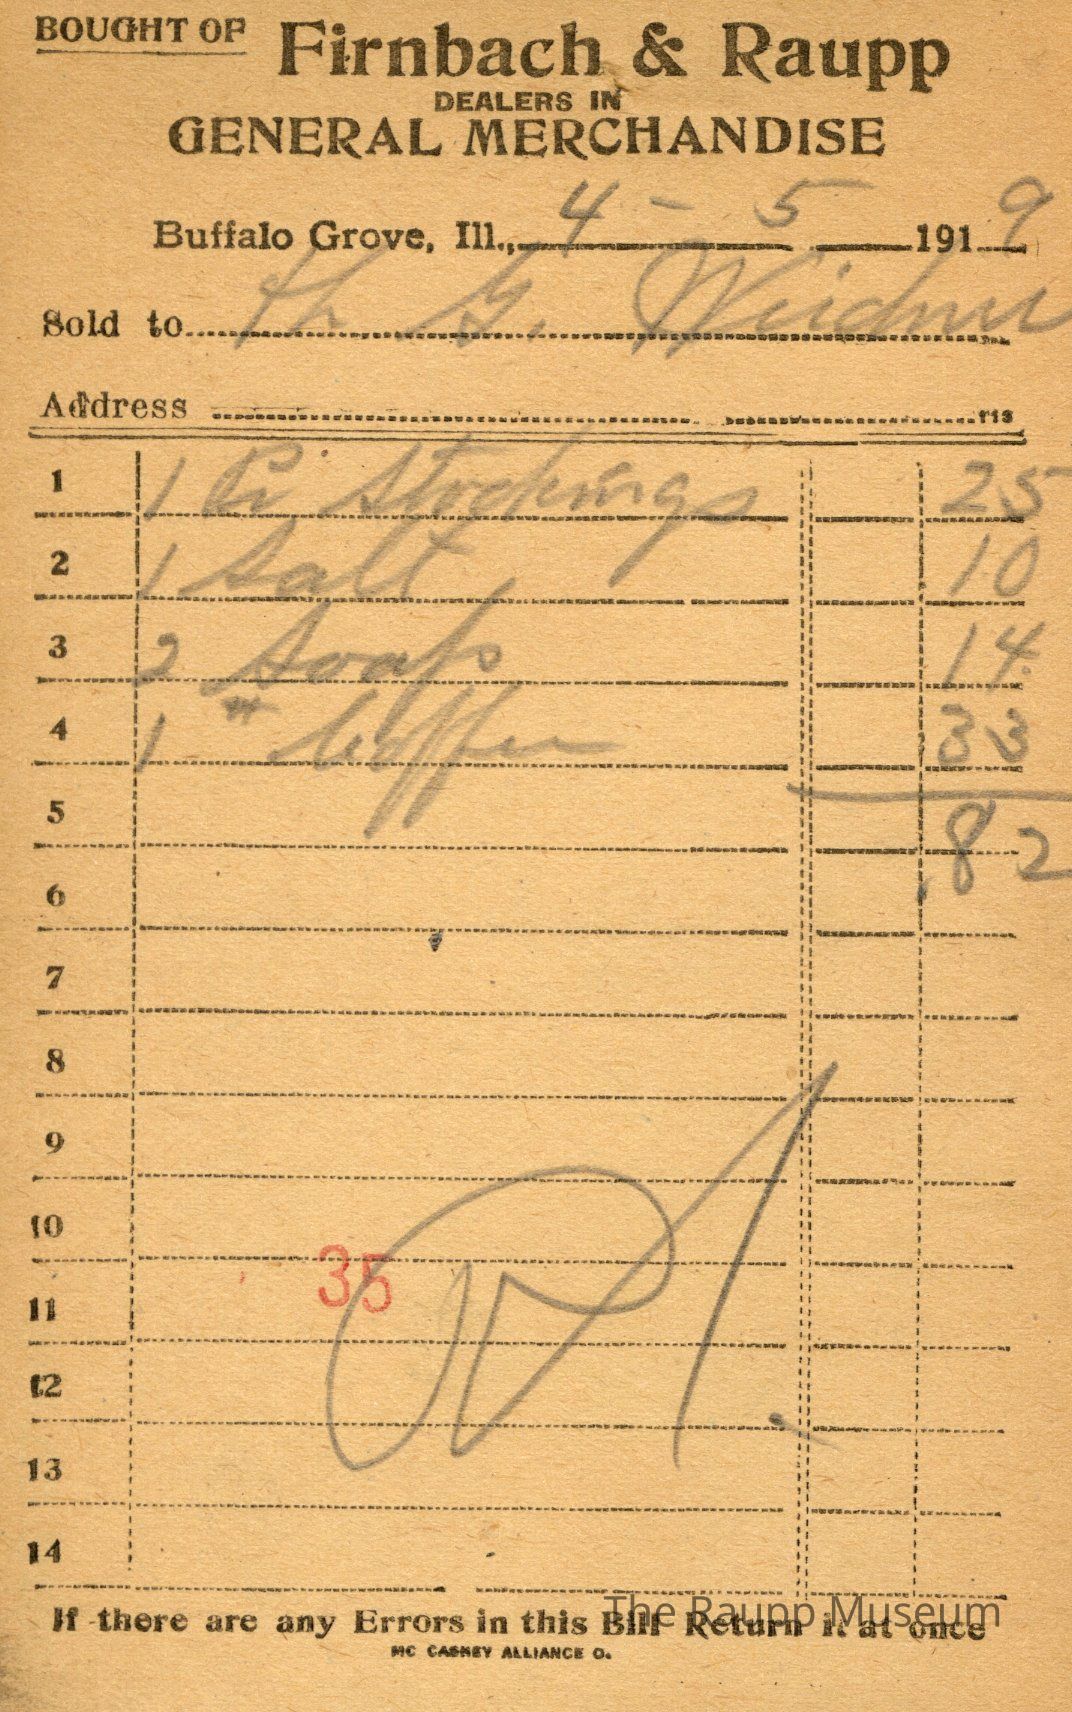 BOUGHT OF Firnbach & Raupp
DEALERS IN
GENERAL MERCHANDISE
Buffalo Grove, Ill., 4 - 5 1919
Sold to G. Weidner
Address
1 1 Pr Stockings 25
2 1 Salt 10
3 2 Soap 14
4 1 # Coffee 33
5 .82
6
7
8
9
10
35
11
12
13
14
If there are any Errors in this Bill Return it at once
MC CASKEY ALLIANCE O.
The Raupp Museum